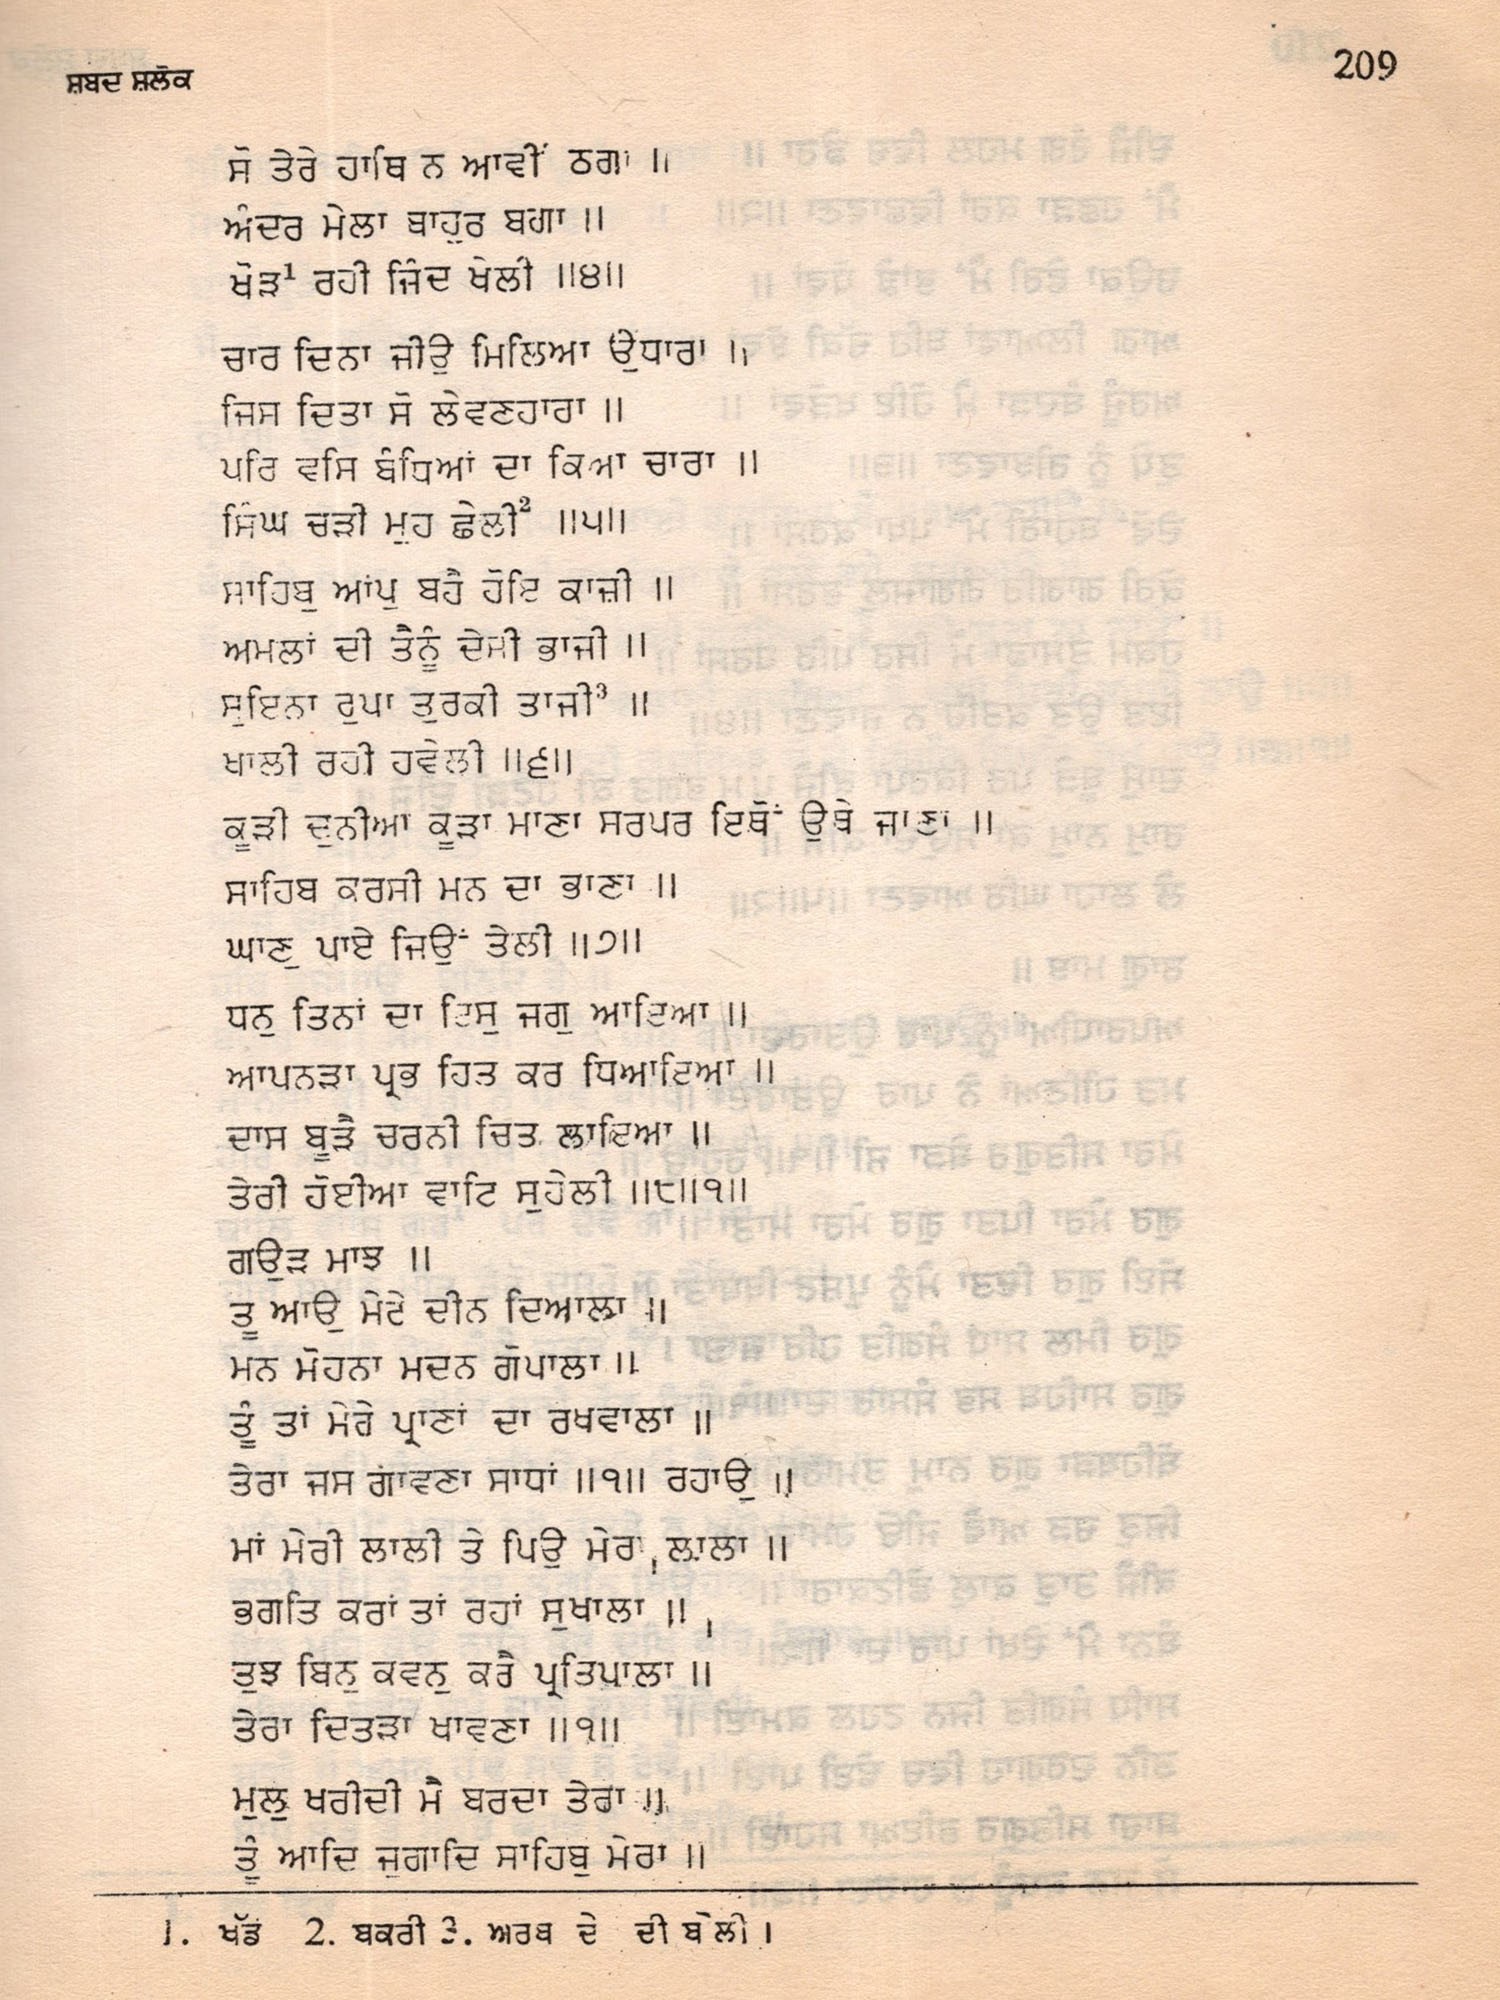 ਸ਼ਬਦ ਸ਼ਲੋਕ
209
ਸੋ ਤੇਰੇ ਹਾਥਿ ਨ ਆਵੀਂ ਠਗਾ ॥
ਅੰਦਰ ਮੇਲਾ ਬਾਹੁਰ ਬਗਾ ॥
ਖੋੜ¹ ਰਹੀ ਜਿੰਦ ਖੇਲੀ ॥੪॥
ਚਾਰ ਦਿਨਾ ਜੀਉ ਮਿਲਿਆ ਉਧਾਰਾ ॥
ਜਿਸ ਦਿਤਾ ਸੋ ਲੇਵਣਹਾਰਾ ॥
ਪਰਿ ਵਸਿ ਬੰਧਿਆਂ ਦਾ ਕਿਆ ਚਾਰਾ ॥
ਸਿੰਘ ਚੜੀ ਮੁਹ ਛੇਲੀ² ॥੫॥
ਸਾਹਿਬੁ ਆਂਪੁ ਬਹੈ ਹੋਇ ਕਾਜ਼ੀ ॥
ਅਮਲਾਂ ਦੀ ਤੈਨੂੰ ਦੇਸੀ ਭਾਜੀ ॥
ਸੁਇਨਾ ਰੁਪਾ ਤੁਰਕੀ ਤਾਜੀ³ ॥
ਖਾਲੀ ਰਹੀ ਹਵੇਲੀ ॥੬॥
ਕੂੜੀ ਦੁਨੀਆ ਕੂੜਾ ਮਾਣਾ ਸਰਪਰ ਇਥੋਂ ਉਥੇ ਜਾਣਾ ॥
ਸਾਹਿਬ ਕਰਸੀ ਮਨ ਦਾ ਭਾਣਾ ॥
ਘਾਣੁ ਪਾਏ ਜਿਉਂ ਤੇਲੀ ॥੭॥
ਧਨੁ ਤਿਨਾਂ ਦਾ ਇਸੁ ਜਗੁ ਆਇਆ ॥
ਆਪਨੜਾ ਪ੍ਰਭ ਹਿਤ ਕਰ ਧਿਆਇਆ ॥
ਦਾਸ ਬੂੜੈ ਚਰਨੀ ਚਿਤ ਲਾਇਆ ॥
ਤੇਰੀ ਹੋਈਆ ਵਾਟਿ ਸੁਹੇਲੀ ॥੮॥੧॥
ਗਉੜ ਮਾਝ ॥
ਤੂ ਆਉ ਮੇਰੇ ਦੀਨ ਦਿਆਲਾ ॥
ਮਨ ਮੋਹਨਾ ਮਦਨ ਗੋਪਾਲਾ ॥
ਤੂੰ ਤਾਂ ਮੇਰੇ ਪ੍ਰਾਣਾਂ ਦਾ ਰਖਵਾਲਾ ॥
ਤੇਰਾ ਜਸ ਗਾਵਣਾ ਸਾਧਾਂ ॥੧॥ ਰਹਾਉ ॥
ਮਾਂ ਮੇਰੀ ਲਾਲੀ ਤੇ ਪਿਉ ਮੇਰਾ ਲਾਲਾ ॥
ਭਗਤਿ ਕਰਾਂ ਤਾਂ ਰਹਾਂ ਸੁਖਾਲਾ ॥
ਤੁਝ ਬਿਨੁ ਕਵਨੁ ਕਰੈ ਪ੍ਰਤਿਪਾਲਾ ॥
ਤੇਰਾ ਦਿਤੜਾ ਖਾਵਣਾ ॥੧॥
ਮੁਲੁ ਖਰੀਦੀ ਮੈ ਬਰਦਾ ਤੇਰਾ ॥
ਤੂੰ ਆਦਿ ਜੁਗਾਦਿ ਸਾਹਿਬੁ ਮੇਰਾ ॥
1. ਖੱਡ 2. ਬਕਰੀ 3. ਅਰਬ ਦੇ ਦੀ ਬੋਲੀ ।